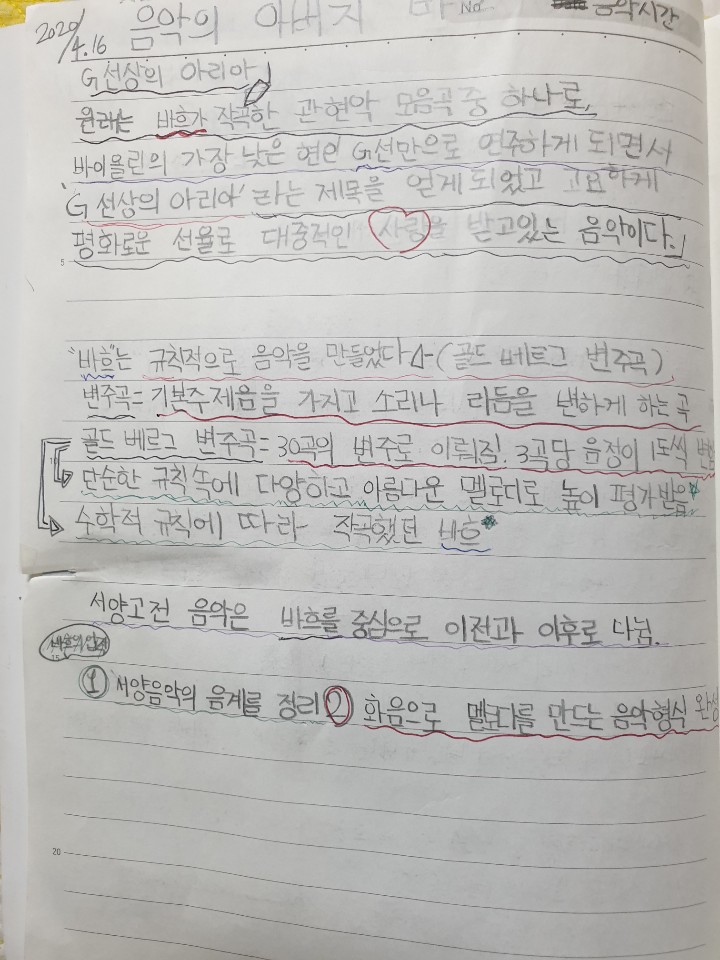 2020/4.16 음악의 아버지 바 No. 음악시간
G선상의 아리아」
원래는 바흐가 작곡한 관현악 모음곡 중 하나로,
바이올린의 가장 낮은 현인 G선만으로 연주하게 되면서
'G선상의 아리아' 라는 제목을 얻게되었고 고요하게
평화로운 선율로 대중적인 사랑을 받고있는 음악이다.」
5
"바흐"는 규칙적으로 음악을 만들었다 (골드 베트그 변주곡)
변주곡= 기본주제음을 가지고 소리나 리듬을 변하게 하는 곡
골드 베르그 변주곡= 30곡의 변주로 이뤄짐. 3곡당 음정이 1도씩
단순한 규칙속에 다양하고 아름다운 멜로디로 높이 평가받음
수학적 규칙에 따라 작곡했던 바흐
서양고전 음악은 바흐를 중심으로 이전과 이후로 나뉨.
바흐의 업적
15
① 서양음악의 음계를 정리 ② 화음으로 멜로디를 만드는 음악형식 완성
20